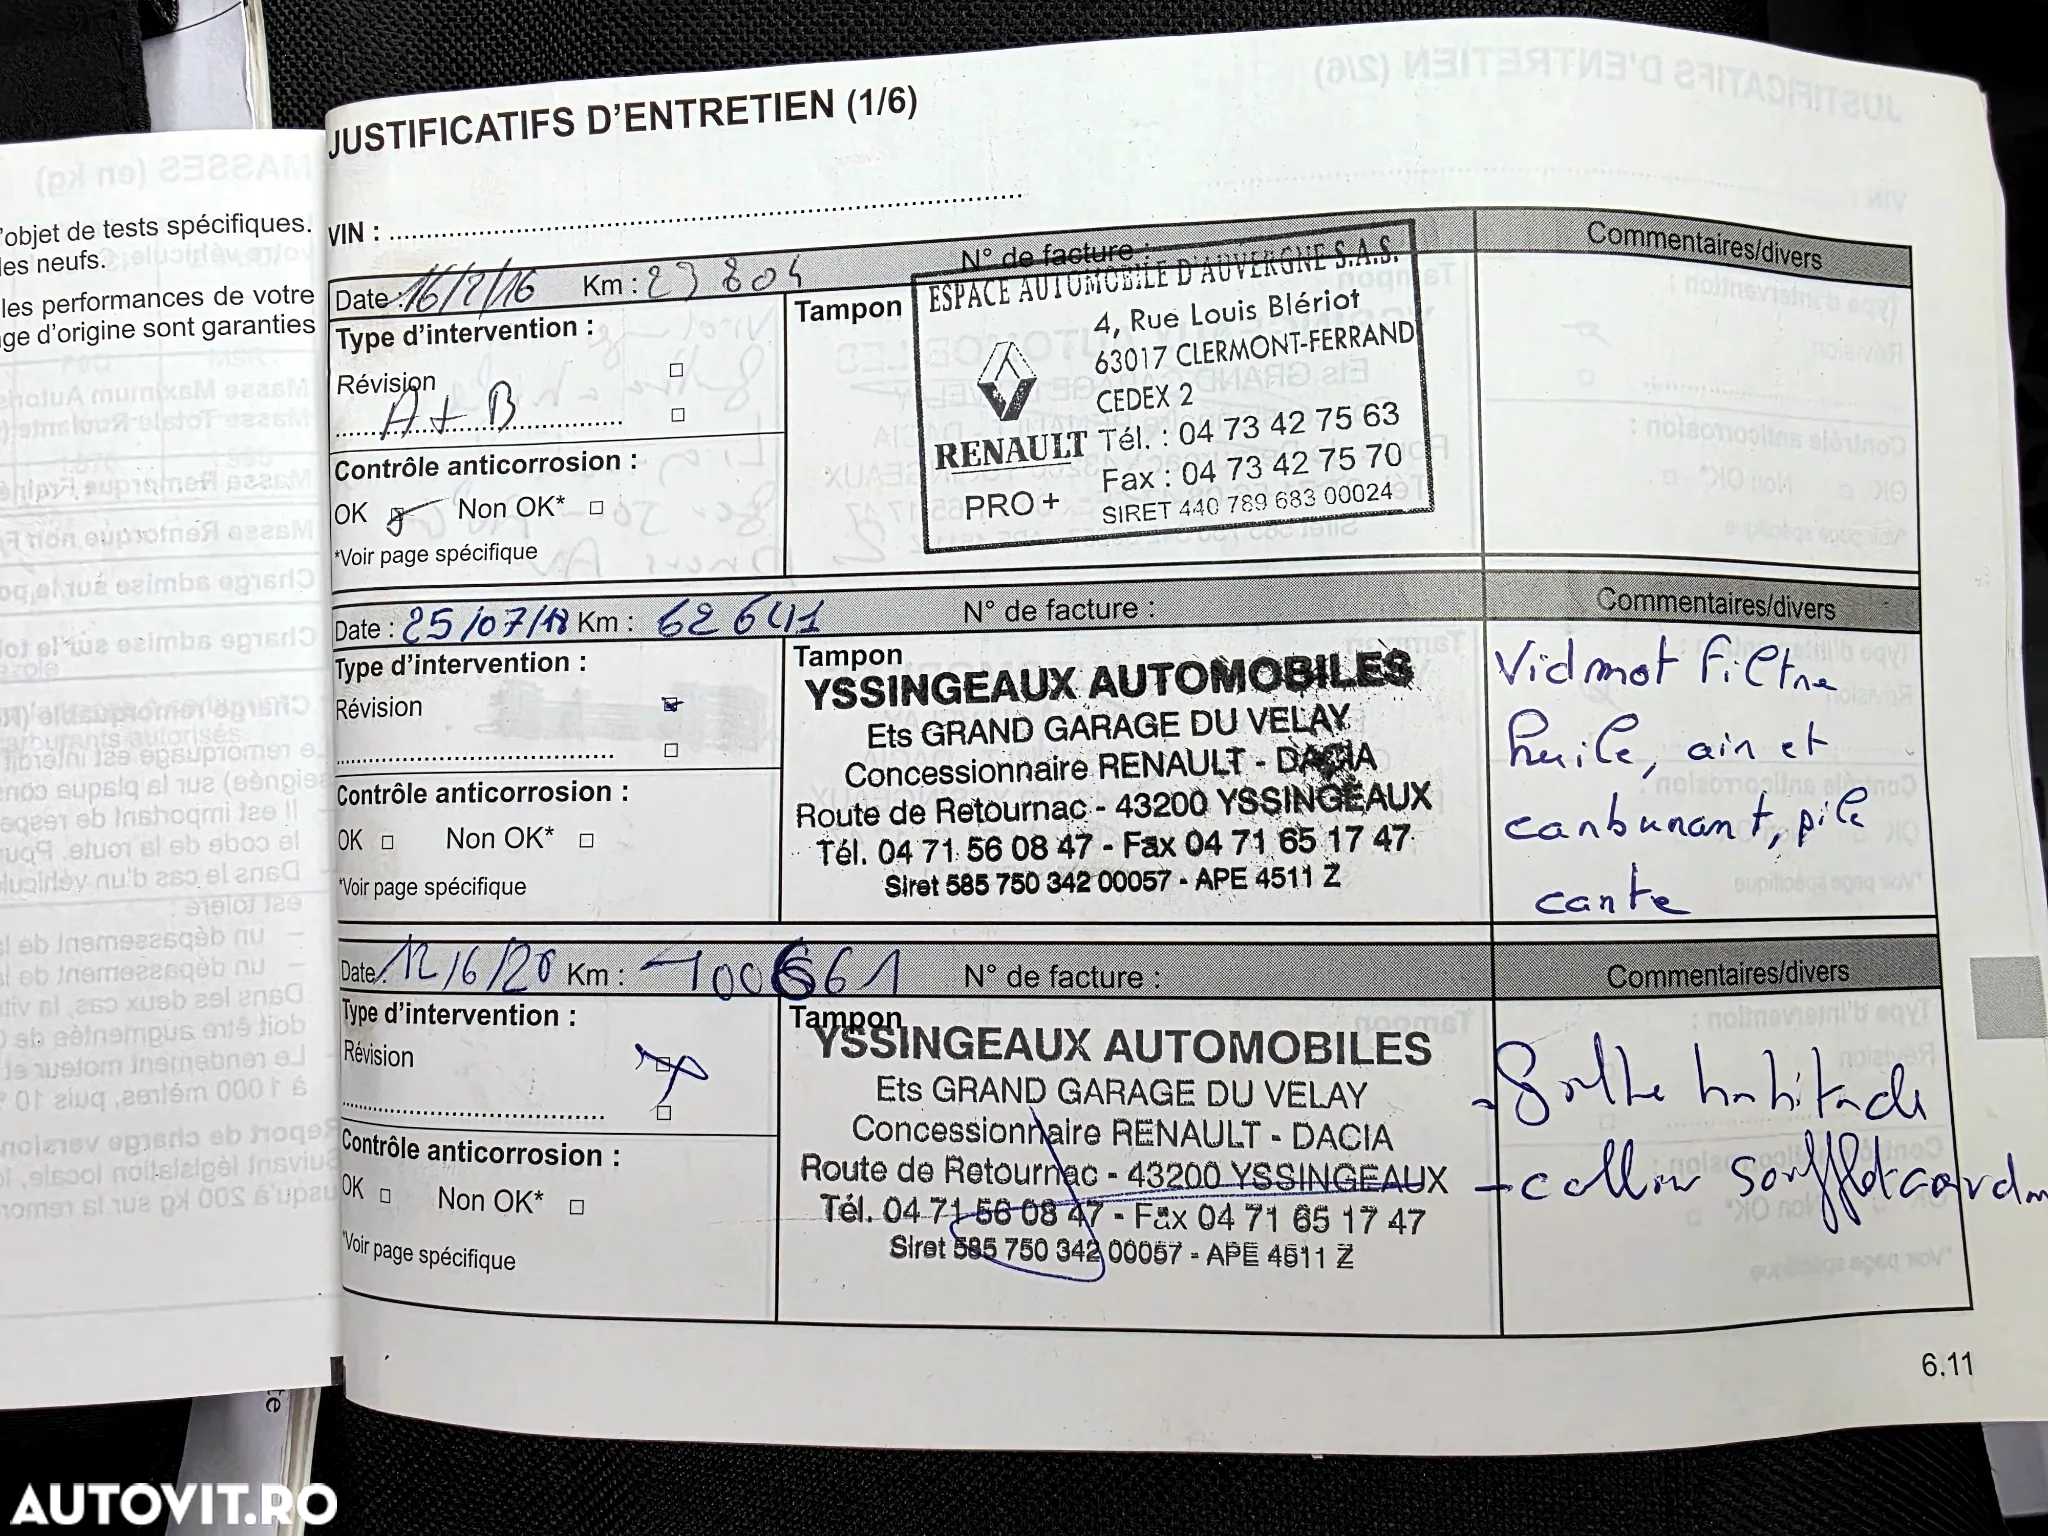 JUSTIFICATIFS D'ENTRETIEN (1/6)
'objet de tests spécifiques.
les neufs.
les performances de votre
ge d'origine sont garanties
VIN :
Date : 16/2/16 Km : 29 804 N° de facture :
Commentaires/divers
Type d'intervention :
Révision
A + B
Contrôle anticorrosion :
OK Non OK*
*Voir page spécifique
Tampon
ESPACE AUTOMOBILE D'AUVERGNE S.A.S.
4, Rue Louis Blériot
63017 CLERMONT-FERRAND
CEDEX 2
RENAULT Tél. : 04 73 42 75 63
Fax : 04 73 42 75 70
PRO+ SIRET 440 789 683 00024
Date : 25/07/18 Km : 62 641 N° de facture :
Commentaires/divers
Type d'intervention :
Révision
Contrôle anticorrosion :
OK Non OK*
*Voir page spécifique
Tampon
YSSINGEAUX AUTOMOBILES
Ets GRAND GARAGE DU VELAY
Concessionnaire RENAULT - DACIA
Route de Retournac - 43200 YSSINGEAUX
Tél. 04 71 56 08 47 - Fax 04 71 65 17 47
Siret 585 750 342 00057 - APE 4511 Z
Vid mot filtre
huile, air et
carburant, pile
carte
Date : 12/6/20 Km : 100661 N° de facture :
Commentaires/divers
Type d'intervention :
Révision
Contrôle anticorrosion :
OK Non OK*
*Voir page spécifique
Tampon
YSSINGEAUX AUTOMOBILES
Ets GRAND GARAGE DU VELAY
Concessionnaire RENAULT - DACIA
Route de Retournac - 43200 YSSINGEAUX
Tél. 04 71 56 08 47 - Fax 04 71 65 17 47
Siret 585 750 342 00057 - APE 4511 Z
habitacle
- soufflet
6.11
te
AUTOVIT.RO